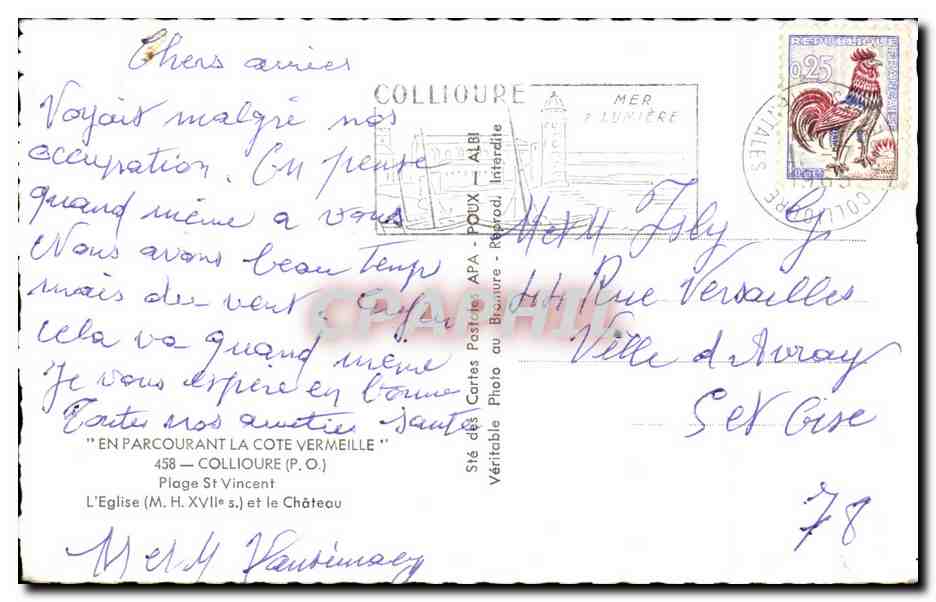 Chers amies
Voyait malgré nos
occupation. On pense
quand même a vous
Nous avons beau temp
mais du vent. Enfin
cela va quand même
Je vous espère en bonne
Toutes nos amitiés santé
"EN PARCOURANT LA COTE VERMEILLE"
458 — COLLIOURE (P. O.)
Plage St Vincent
L'Eglise (M. H. XVIIe s.) et le Château
M et M
Sté des Cartes Postales APA - POUX — ALBI
Véritable Photo au Bromure - Reprod. Interdite
COLLIOURE
MER
LUMIÈRE
REPUBLIQUE FRANÇAISE
0,25
COLLIOURE
M et M
44 Rue Versailles
Ville d'Avray
S et Oise
78
CPAPHIL